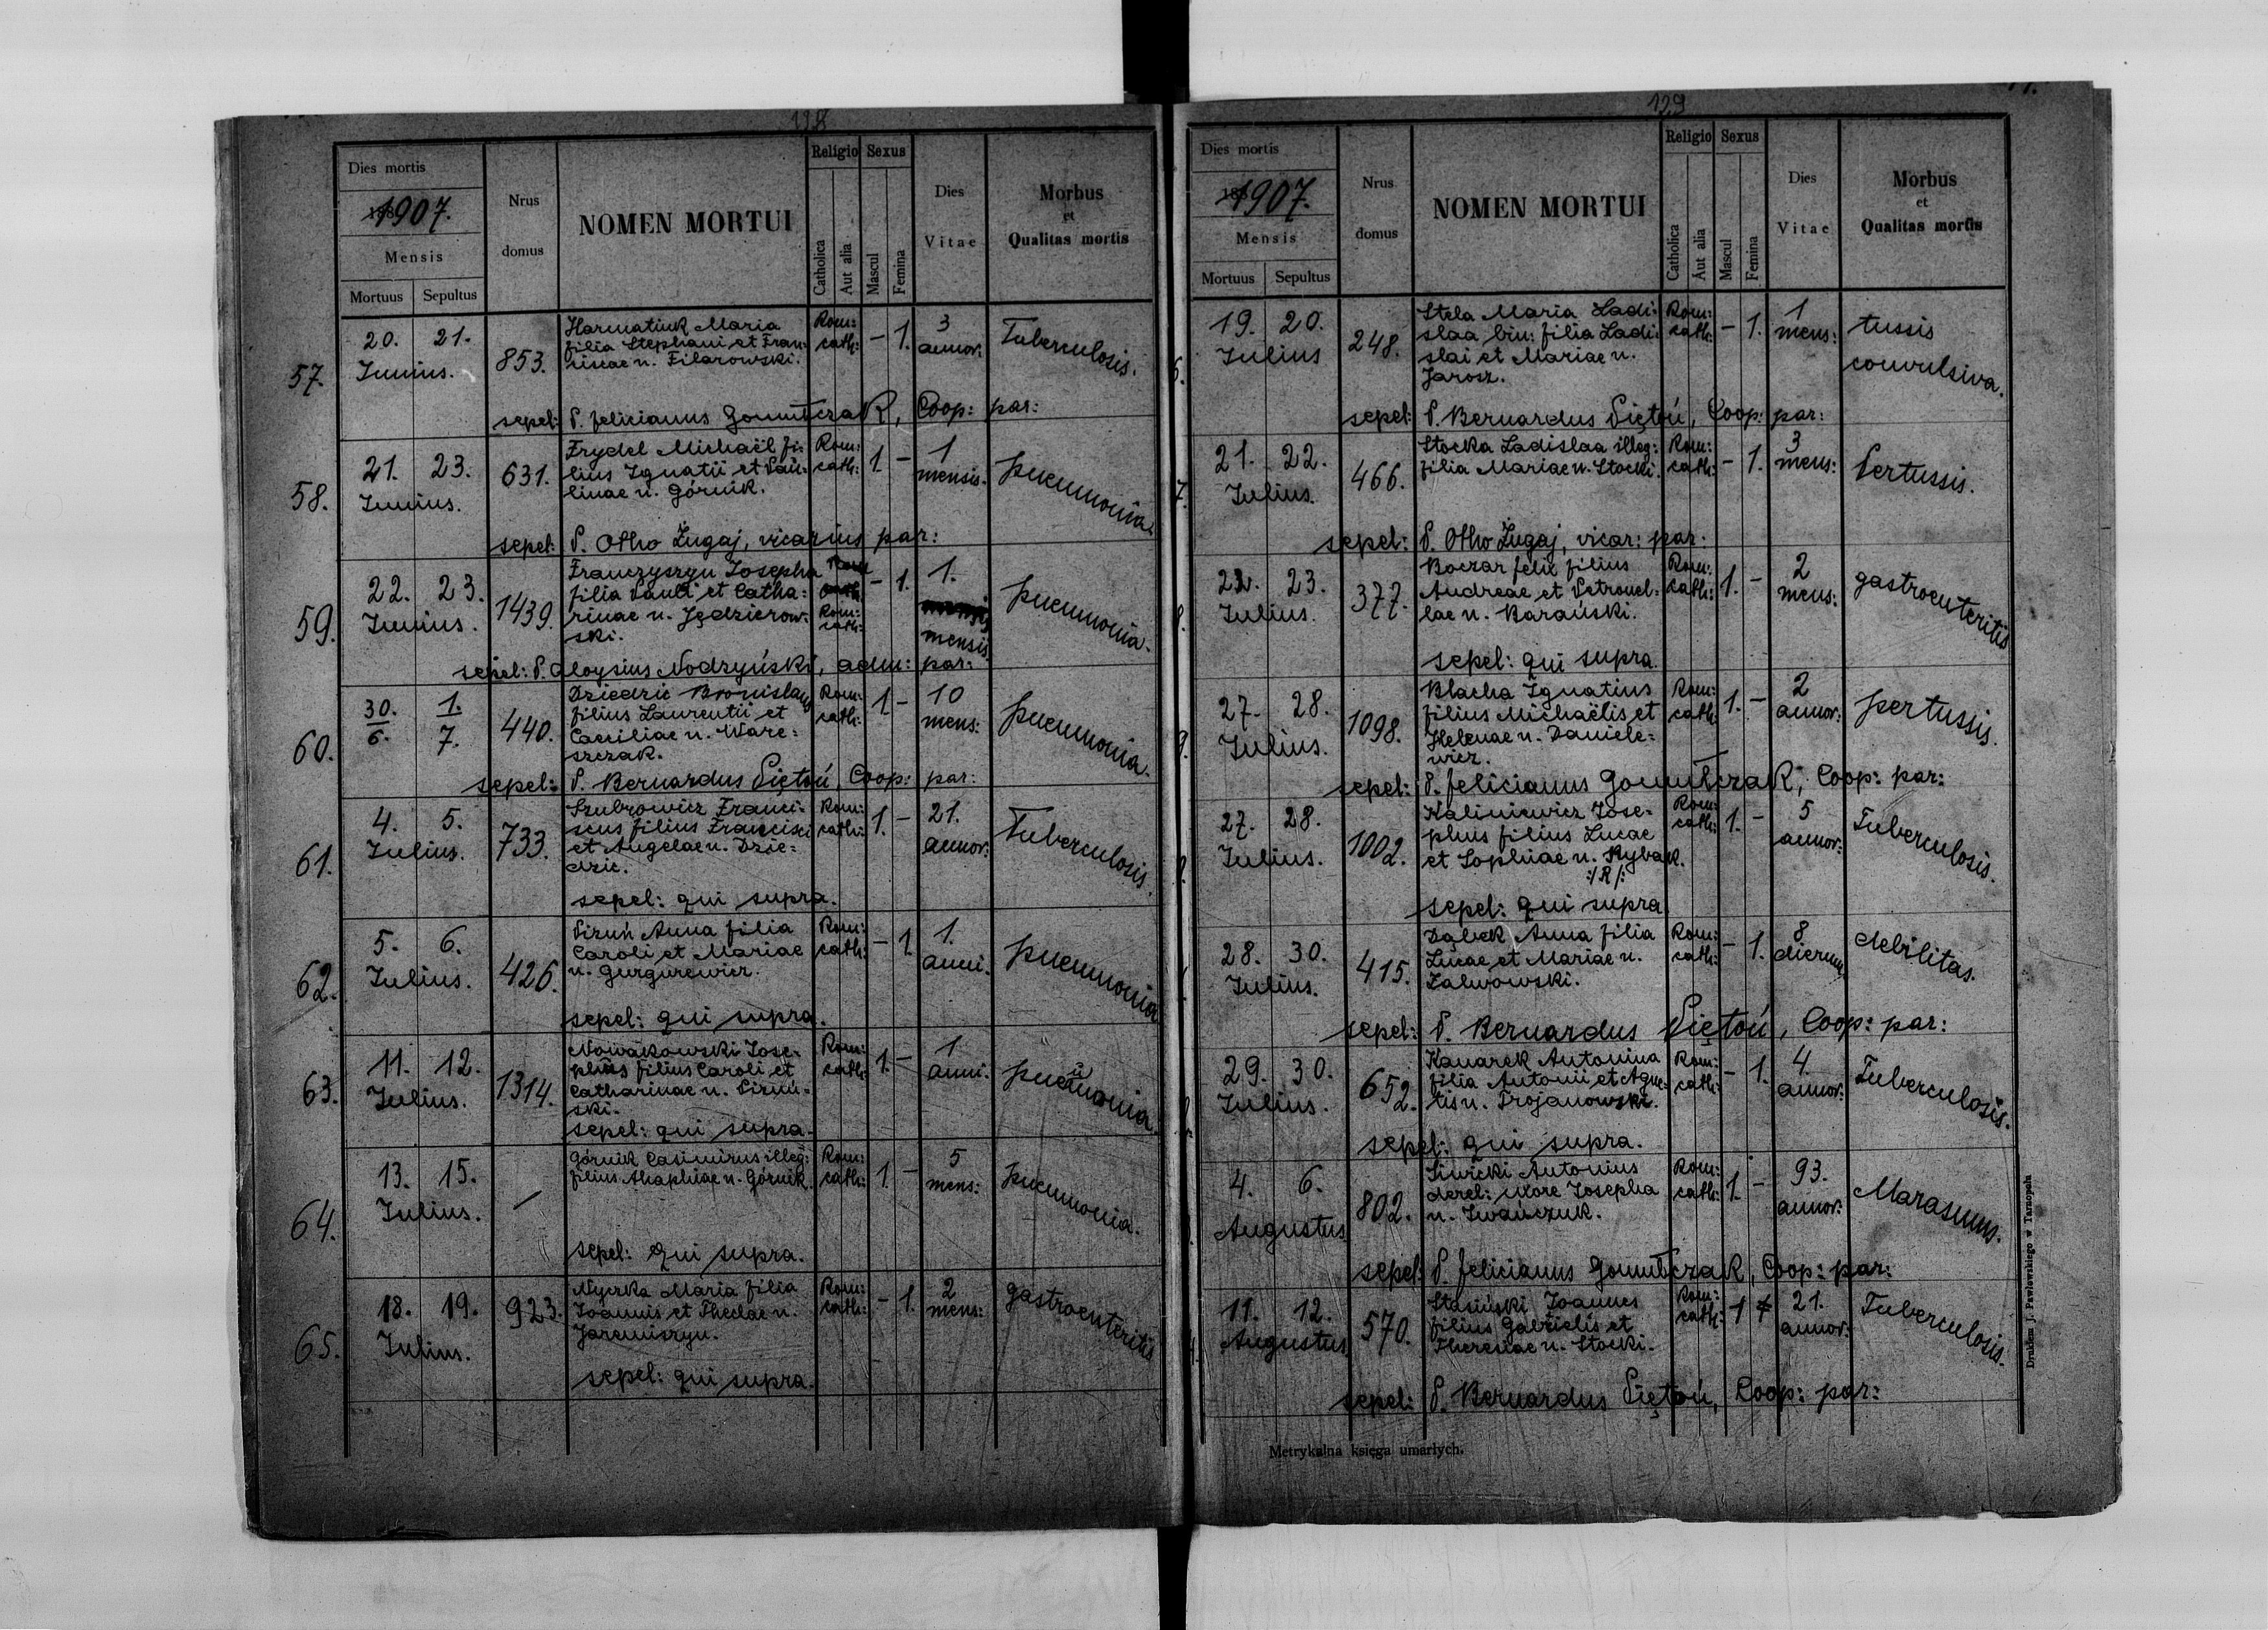 128
Dies mortis
1907.
Mensis
Mortuus Sepultus
Nrus domus
NOMEN MORTUI
Religio
Catholica
Aut alia
Sexus
Mascul
Femina
Dies Vitae
Morbus
et
Qualitas mortis
57.
20. 21.
Junius.
853.
Harmatiuk Maria
filia Stephani et Fran-
ciscae n. Filarowski.
Rom:
cath:
– 1.
3
annor:
Tuberculosis.
sepel: P. Felicianus Gomułczak, Coop: par:
58.
21. 23.
Junius.
631.
Frydel Michaël fi-
lius Ignatii et Pau-
linae n. Górnik.
Rom:
cath:
1 –
1
mensis.
pneumonia.
sepel: P. Otho Żugaj, vicarius par:
59.
22. 23.
Junius.
1439.
Franczyszyn Josepha
filia Pauli et Catha-
rinae n. Jędzierow-
ski.
Rom:
cath:
– 1.
1.
mensis
pneumonia.
sepel: P. Aloysius Nodzyński, adm: par:
60.
30. 1.
6. 7.
440.
Dziedzic Bronislaus
filius Laurentii et
Caeciliae n. Ware-
szczak.
Rom:
cath:
1 –
10
mens:
pneumonia.
sepel: P. Bernardus Piętoń, Coop: par:
61.
4. 5.
Julius.
733.
Szubrowicz Franci-
scus filius Francisci
et Angelae n. Dzie-
dzic.
Rom:
cath:
1. –
21.
annor:
Tuberculosis.
sepel: qui supra.
62.
5. 6.
Julius.
426.
Pizuń Anna filia
Caroli et Mariae
n. Gurgurewicz.
Rom:
cath:
– 1
1.
anni.
pneumonia
sepel: qui supra.
63.
11. 12.
Julius.
1314.
Nowakowski Jose-
phus filius Caroli et
Catharinae n. Pizuń-
ski.
Rom:
cath:
1. –
1
anni.
pneumonia.
sepel: qui supra.
64.
13. 15.
Julius.
–
Górnik Casimirus illeg:
filius Ahaphiae n. Górnik.
Rom:
cath:
1 –
5
mens:
pneumonia.
sepel: qui supra.
65.
18. 19.
Julius.
923.
Nyczka Maria filia
Joannis et Theclae n.
Jaremiszyn.
Rom:
cath:
– 1.
2
mens:
gastroenteritis
sepel: qui supra.
129
Dies mortis
1907.
Mensis
Mortuus Sepultus
Nrus domus
NOMEN MORTUI
Religio
Catholica
Aut alia
Sexus
Mascul
Femina
Dies Vitae
Morbus
et
Qualitas mortis
6.
19. 20.
Julius
248.
Stela Maria Ladi-
slaa bin: filia Ladi-
slai et Mariae n.
Jarosz.
Rom:
cath:
– 1.
1
mens:
tussis
convulsiva.
sepel: P. Bernardus Piętoń, Coop: par:
7.
21. 22.
Julius.
466.
Stocka Ladislaa illeg:
filia Mariae n. Stocki.
Rom:
cath:
– 1.
3
mens:
Pertussis.
sepel: P. Otho Żugaj, vicar: par:
8.
22. 23.
Julius.
377.
Boczar Felix filius
Andreae et Petronel-
lae n. Barański.
Rom:
cath:
1. –
2
mens:
gastroenteritis
sepel: qui supra.
9.
27. 28.
Julius.
1098.
Blacha Ignatius
filius Michaëlis et
Helenae n. Daniele-
wicz.
Rom:
cath:
1. –
2
annor:
pertussis.
sepel: P. Felicianus Gomułczak, Coop: par:
27. 28.
Julius.
1002.
Kaliniewicz Jose-
phus filius Lucae
et Sophiae n. Rybak.
:/R/:
Rom:
cath:
1. –
5
annor:
Tuberculosis.
sepel: qui supra
28. 30.
Julius.
415.
Dąbek Anna filia
Lucae et Mariae n.
Zalwowski.
Rom:
cath:
– 1.
8
dierum
debilitas.
sepel: P. Bernardus Piętoń, Coop: par:
29. 30.
Julius.
652.
Kanarek Antonina
filia Antonii et Agne-
tis n. Trojanowski.
Rom:
cath:
– 1.
4.
annor:
Tuberculosis.
sepel: qui supra.
4. 6.
Augustus
802.
Siwicki Antonius
derel: uxore Josepha
n. Iwańczuk.
Rom:
cath:
1. –
93.
annor:
Marasmus.
sepel: P. Felicianus Gomułczak, Coop: par:
11. 12.
Augustus.
570.
Stasiński Joannes
filius Gabrielis et
Theresiae n. Stocki.
Rom:
cath:
1
21.
annor:
Tuberculosis.
sepel: P. Bernardus Piętoń, Coop: par:
Metrykalna księga umarłych.
Drukiem J. Pawłowskiego w Tarnopolu